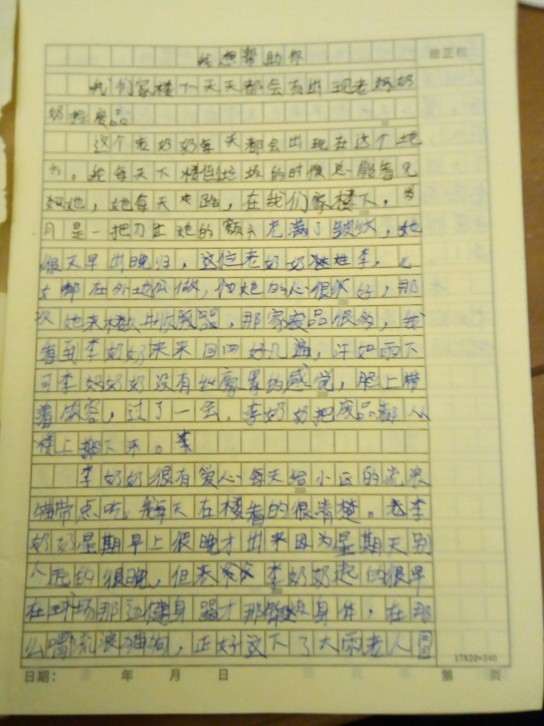 我想帮助你
修正栏
我们家楼下天天都会有出现老奶奶
奶捡废品
这个老奶奶每天都会出现在这个地
方。我每天下楼倒垃圾的时候总能看见
她，她每天走路，在我们家楼下。岁
月是一把刀让她的额头充满了皱纹，她
很天早出晚归，这位老奶奶姓李，儿
女都在外地，她的心很好，那
次她来楼上收废品，那家废品很多，我
看到李奶奶来来回回好几趟，汗如雨下
可李奶奶没有的感觉，脸上带
着笑容，过了一会，李奶奶把废品都从
楼上搬下来。李
李奶奶很有爱心每天给小区的流浪
猫带点吃，我每天在楼看的很清楚。老李
奶奶星期早上很晚才出来因为星期天别
人起的很晚，但李奶奶起的很早
在球场那边健身器才那锻炼身体，在那
么喂流浪猫狗，正好这下了大雨老人
17X20=340
日期： 年 月 日 第 页